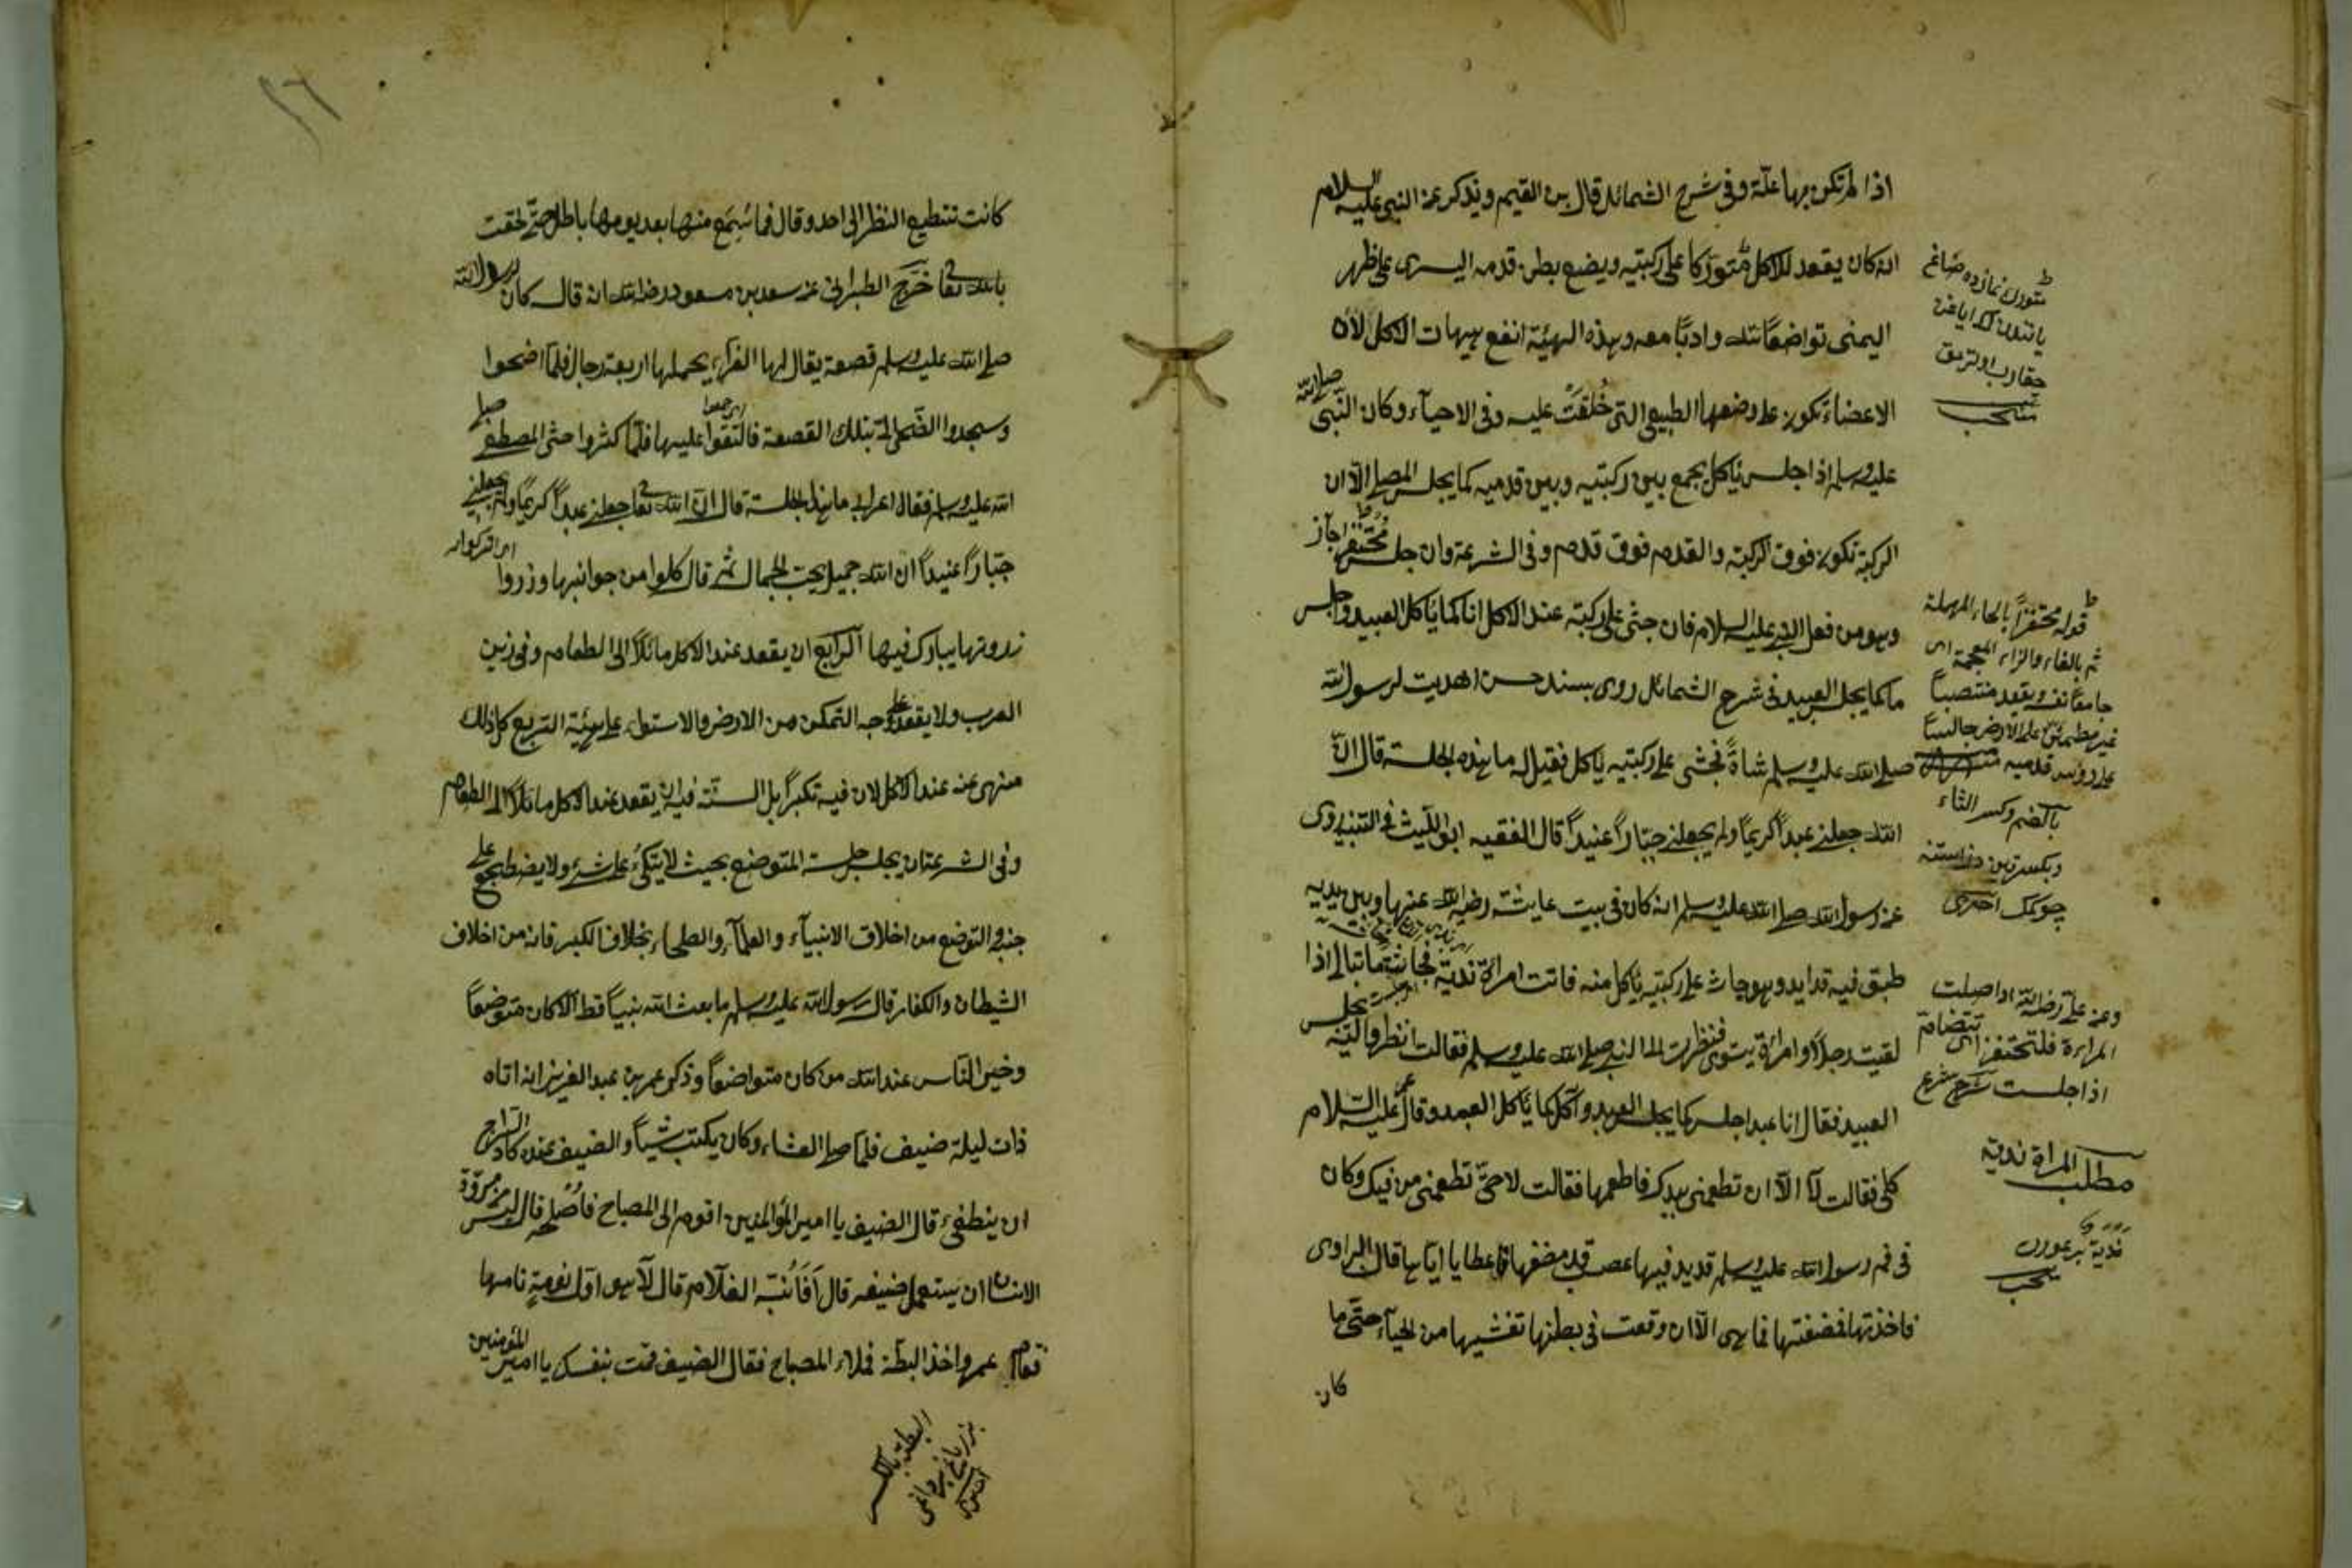 اذا لم تكن بها علة وفى شرح الشمائل قال بن القيم ويذكر عن النبى عليه السلام
انه كان يقعد للاكل متوركا على ركبتيه ويضع بطن قدمه اليسرى على ظهر
اليمنى تواضعًا لله وادبًا معه وبهذه الهيئة انفع هيهات الاكل لان
الاعضاء تكون على وضعها الطبيعى التى خُلقَتْ عليه وفى الاحيآء وكان النّبى صلى الله
عليه وسلم اذا جلس ياكل يجمع بين ركبتيه وبين قدميه كما يجلس المصلى الّا ان
الركبة تكون فوق الركبة والقدم فوق قدم وفى الشرعة وان جلس مُحتفزا جاز
وهو من فعل النبى عليه السلام فان جثى على ركبته عند الاكل انا كما ياكل العبيد واجلس
ما كما يجلس العبيد فى شرح الشمائل روى بسند حسن اهديت لرسول الله
صلى الله عليه وسلم شاةً فجثى على ركبتيه ياكل فقيل له ما هذه الجلسة قال انّ
الله جعلنى عبداً كريمًا ولم يجعلنى جبّاراً عنيداً قال الفقيه ابو اللّيث فى التنبيه روى
عن رسول الله صلى الله عليه وسلم انه كان فى بيت عايشة رضى الله عنها وبين يديه
طبق فيه قدايد وهو جاث على ركبتيه ياكل منه فاتت امرأة نديّة فحاشة ما تبالى اذا
لقيت رجلاً او امراة يستوى فنظرت الى النبى صلى الله عليه وسلم فقالت انظروا اليه يجلس
العبيد فقال انا عبد اجلس كما يجلس العبد وآكل كما ياكل العبد وقال عليه السّلام
كلى فقالت لآ الّا ان تطعمنى بيدك فاطعمها فقالت لا حتّى تطعمنى من فيك وكان
فى فم رسول الله عليه وسلم قديد فيها عصب قد مضغها فاعطايا ايّاها قال الراوى
فاخذتها فمضغتها فما هى الّا ان وقعت فى بطنها تغشيها من الحيآء حتّى ما
كان
قوله محتفزاً بالحاء المهملة
ثم بالفاء والزاء المعجمة اى
جامعًا نفسه ويقعد منتصباً
غير مطمئن على الارض جالساً
على رؤس قدميه
بالضم وكسر الثاء
وعن على رضى الله اذا صلت
المراءة فلتحتفز اى تتضامّ
اذا جلست شرح شرع
مطلب المراة ندية
كانت تنطيع النظر الى احد وقال فما سُمِع منها بعد يومها باطل حتّى لحقت
بالله تعا خرّج الطبرانى عن سعد بن مسعود رضى الله انه قال كان لرسول الله
صلى الله عليه وسلم قصعة يقال لها الغراء يحملها اربعة رجال فلما اضحوا
وسجدوا الضّحى اتى بتلك القصعة فالتقوا عليها فلمّا كثروا جثى المصطفى صلى
الله عليه وسلم فقال اعرابى ما هذه الجلسة قال انّ الله تعا جعلنى عبداً كريمًا ولم يجعلنى
جبّاراً عنيداً ان الله جميل يحب الجمال ثم قال كلوا من جوانبها وذروا
زروتها يبارك فيها الرابع ان يقعد عند الاكل مائلاً الى الطعام وفى زين
العرب ولا يقعد على وجه التمكن من الارض والاستواء على هيئة التربع كل ذلك
منهى عنه عند الاكل لان فيه تكبراً بل السنّة فيه ان يقعد عند الاكل مائلاً الى الطعام
وفى الشرعة ان يجلس جلسة المتوضع بحيث لا يتّكئ على شئ ولا يضطجع على
جنبه والتوضع من اخلاق الانبيآء والعلمآء والصلحاء بخلاف الكبر فانه من اخلاق
الشيطان والكفار قال رسول الله عليه وسلم ما بعث الله نبياً قط الّا كان متوضعاً
وخير النّاس عند الله من كان متواضعًا وذكر عمر بن عبد العزيز انه اتاه
ذات ليلة ضيف فلمّا صلى العشاء وكان يكتب شيأً والضيف عنده كاد السّراج
ان ينطفئ قال الضيف يا امير المؤالمنين اقوم الى المصباح فاصُلحه قال ليس من مروّة
الانسان ان يستعمل ضيفه قال اَفَاُنبّه الغلام قال لآ هو اوّل نومةٍ نامها
فقام عمر واخذ البطّة فملاء المصباح فقال الضيف قمت بنفسك يا امير المؤمنين